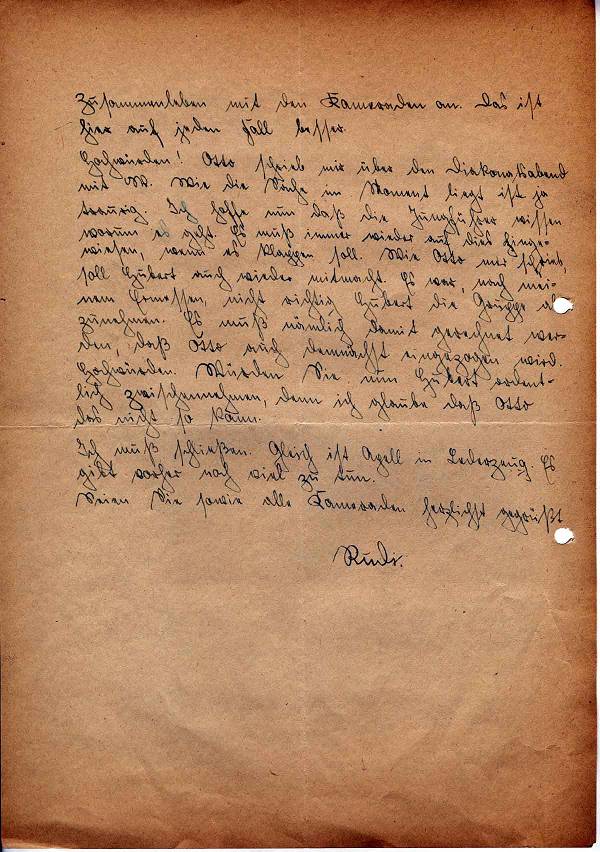 Zusammenleben mit den Kameraden an. Das ist
hier auf jeden Fall besser.
Hochwürden! Otto schrieb mir über den Diakonatsabend
mit W. Wie die Sache im Moment liegt ist ja
traurig. Ich hoffe nun daß die Jungführer wissen
worum es geht. Es muß immer wieder auf dies hinge-
wiesen, wenn es klappen soll. Wie Otto mir schrieb,
soll Hubert auch wieder mitmacht. Es war, nach mei-
nem Ermessen, nicht richtig Hubert die Gruppe ab
zunehmen. Es muß nämlich damit gerechnet wer-
den, daß Otto auch demnächst eingezogen wird.
Hochwürden. Würden Sie nun Hubert ordent-
lich zwischennehmen, denn ich glaube daß Otto
das nicht so kann.
Ich muß schließen. Gleich ist Apell in Lederzeug. Es
gibt vorher noch viel zu tun.
Seien Sie sowie alle Kameraden herzlichst gegrüßt
Rudi.